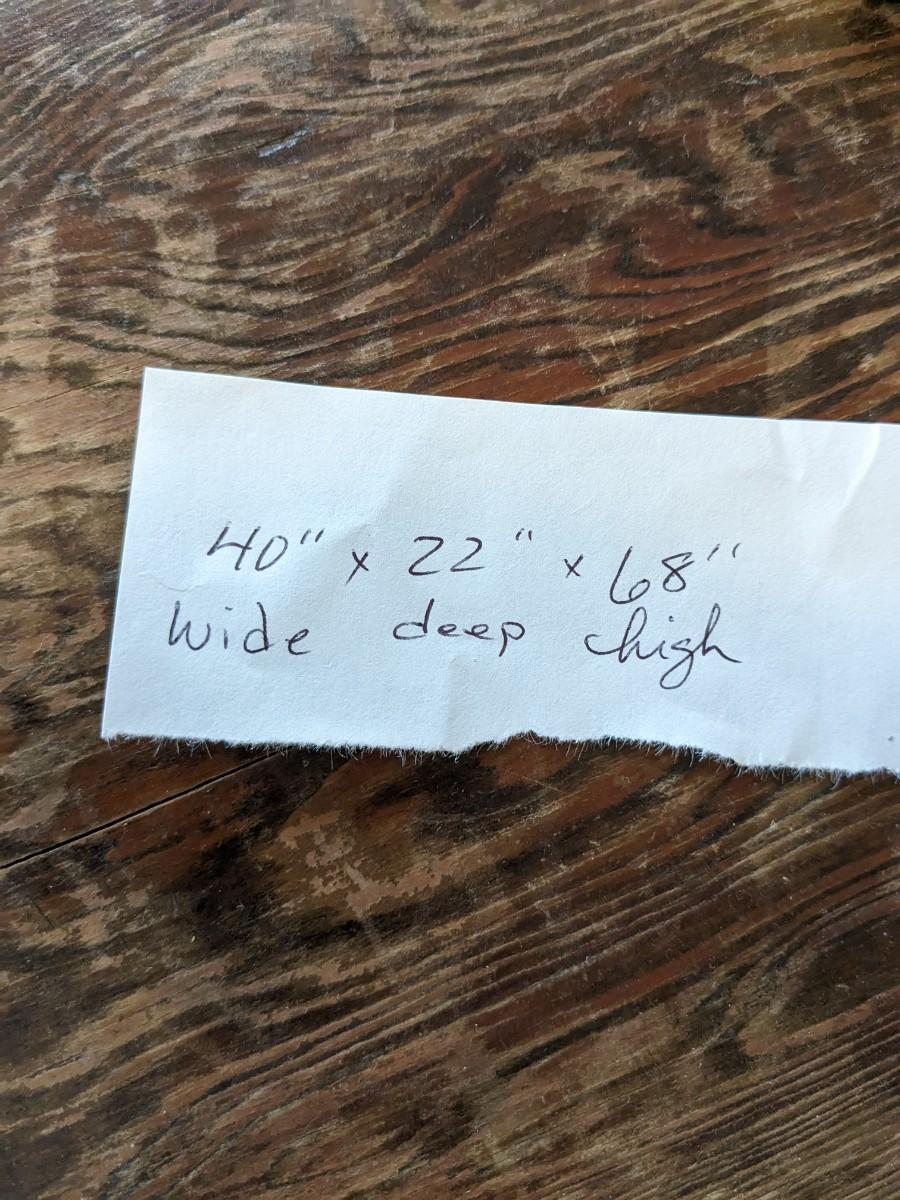 40" x 22" x 68"
wide deep high